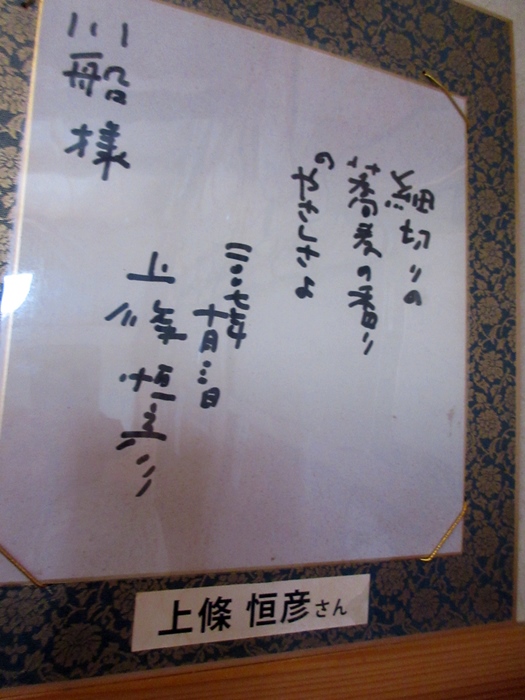 細切りの
蕎麦の香り
のやさしさよ
二〇〇七年
十月三日
上條恒彦
川船様
上條 恒彦さん